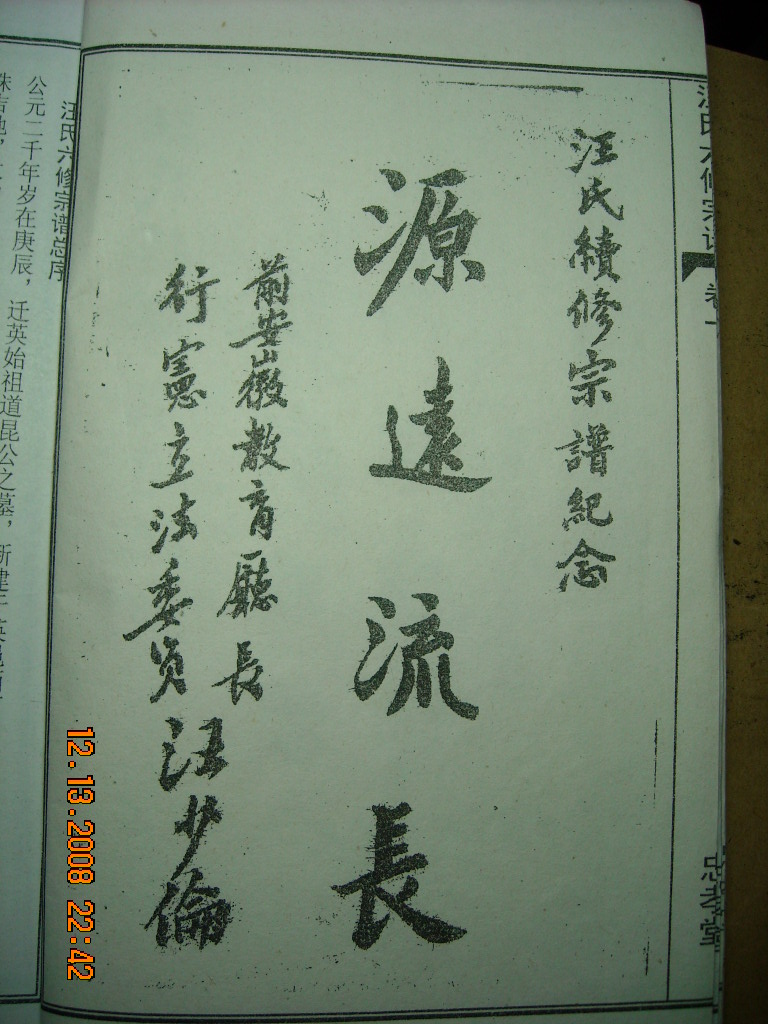 汪氏六修宗谱
卷一
忠孝堂
汪氏續修宗譜紀念
源遠流長
前安徽教育廳長
行憲立法委員汪少倫
汪氏六修宗谱总序
公元二千年岁在庚辰，迁英始祖道昆公之墓，新建于英
12.13.2008 22:42